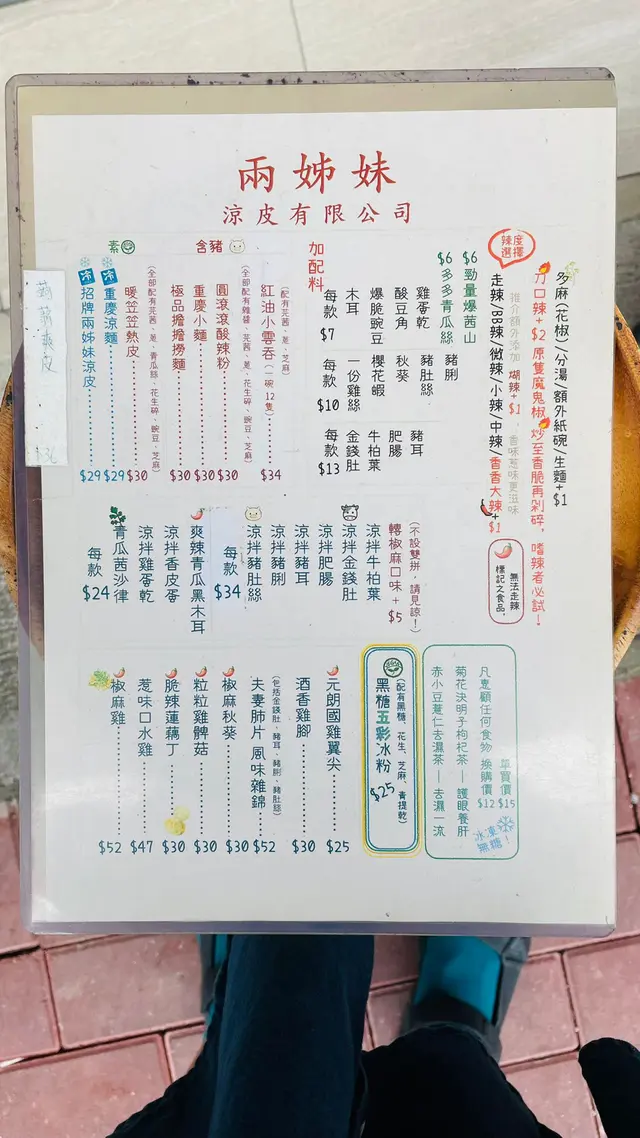 兩姊妹
涼皮有限公司
辣度選擇
多麻(花椒)/分湯/額外紙碗/生麵+$1
刀口辣+$2 原隻魔鬼椒炒至香脆再剁碎，嗜辣者必試！
推介額外添加 煳辣+$1，香味惹味更滋味
走辣/BB辣/微辣/小辣/中辣/香香大辣+$1
無法走辣
標記之食品，
加配料
$6勁量爆茜山
$6多多青瓜絲
雞蛋乾
酸豆角
爆脆豌豆
木耳
每款$7
豬脷
豬肚絲
秋葵
櫻花蝦
一份雞絲
每款$10
豬耳
肥腸
牛柏葉
金錢肚
每款$13
含豬
(配有芫茜、蔥、芝麻)
紅油小雲吞(一碗12隻) $34
(全部配有雜醬、芫茜、蔥、花生碎、豌豆、芝麻)
圓滾滾酸辣粉 $30
重慶小麵 $30
極品擔擔撈麵 $30
素
(全部配有芫茜、蔥、青瓜絲、花生碎、豌豆、芝麻)
暖笠笠熱皮 $30
冷 重慶涼麵 $29
冷 招牌兩姊妹涼皮 $29
蒟蒻爽皮
$36
(不設雙拼，請見諒！)
轉椒麻口味+$5
涼拌牛柏葉
涼拌金錢肚
涼拌肥腸
涼拌豬耳
涼拌豬脷
涼拌豬肚絲
每款$34
爽辣青瓜黑木耳
涼拌香皮蛋
涼拌雞蛋乾
青瓜茜沙律
每款$24
凡惠顧任何食物 換購價$12 單買價$15
菊花決明子枸杞茶—護眼養肝
赤小豆薏仁去濕茶—去濕一流
冰凍無糖！
(配有黑糖、花生、芝麻、青提乾)
黑糖五彩冰粉 $25
元朗國雞翼尖 $25
酒香雞腳 $30
(包括金錢肚、豬耳、豬脷、豬肚絲)
夫妻肺片 風味雜錦 $52
椒麻秋葵 $30
粒粒雞髀菇 $30
脆辣蓮藕丁 $30
惹味口水雞 $47
椒麻雞 $52